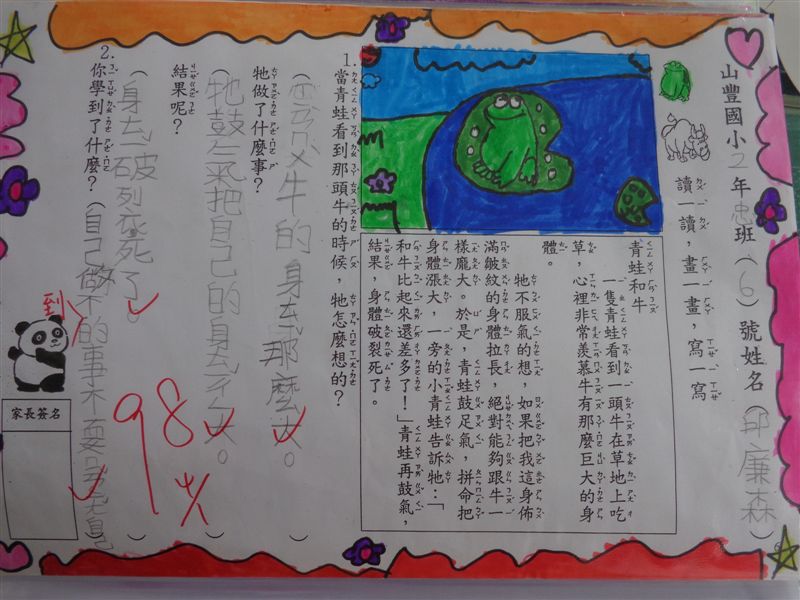 山豐國小2年忠班(6)號姓名(邱廉森)
讀一讀,畫一畫,寫一寫
青蛙和牛
一隻青蛙看到一頭牛在草地上吃
草,心裡非常羨慕牛有那麼巨大的身
體。
牠不服氣的想,如果把我這身佈
滿皺紋的身體拉長,絕對能夠跟牛一
樣龐大。於是,青蛙鼓足氣,拼命把
身體漲大,一旁的小青蛙告訴牠:「
和牛比起來還差多了!」青蛙再鼓氣,
結果,身體破裂死了。
1.當青蛙看到那頭牛的時候,牠怎麼想的?
牛的身ㄊㄧˇ那麼大。
牠做了什麼事?
(牠鼓ㄑㄧˋ來把自己的身ㄊㄧˇ
大。)
結果呢?
(身ㄊㄧˇ破列死了。)
2.你學到了什麼?(自己做不到的事不要
自己)
98
家長簽名